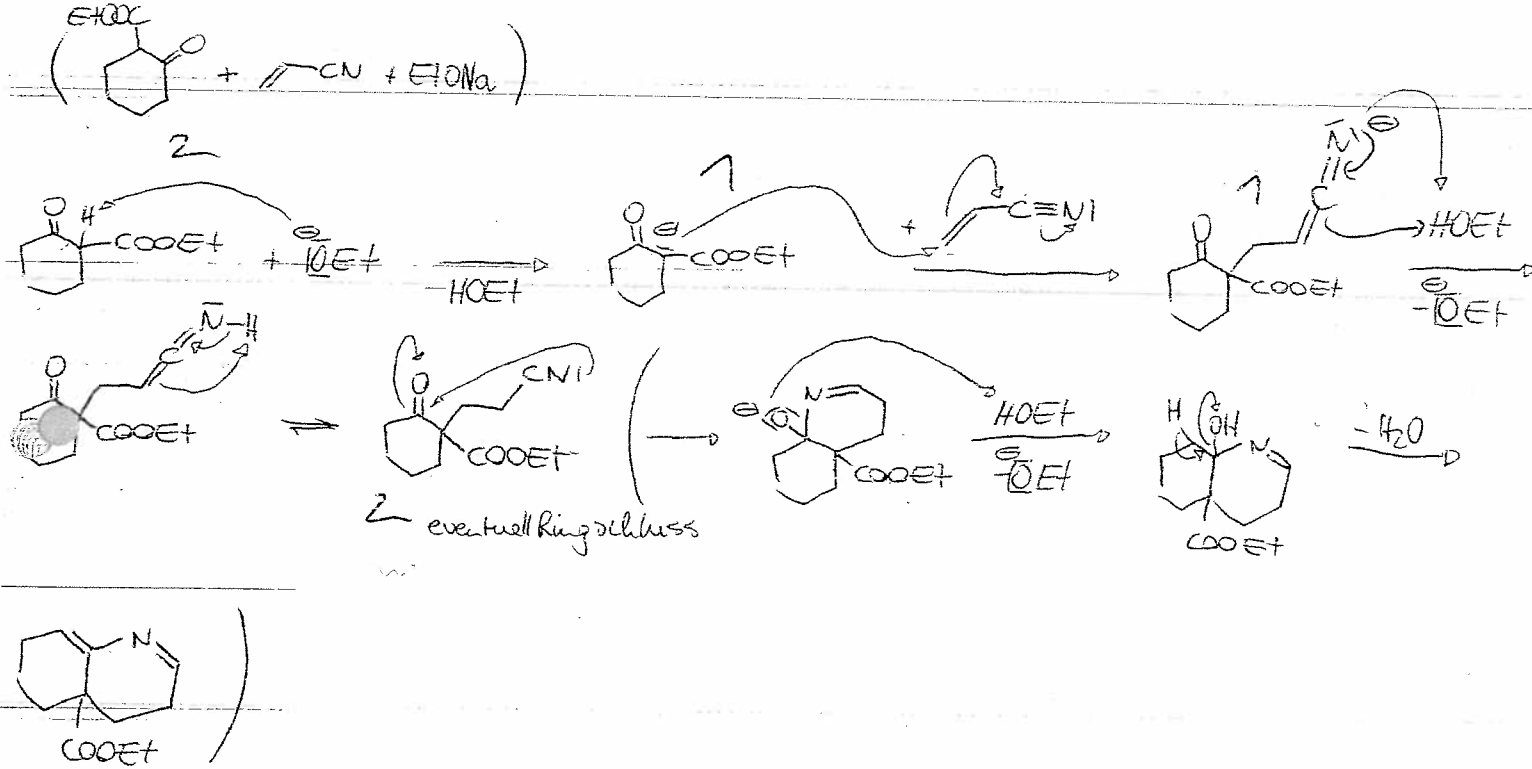 EtOOC
O
+ CN + EtONa
2
1
1
O H COOEt + ⊖ |OEt -HOEt
O ⊖ COOEt + C≡N|
O COOEt C N| ⊖ HOEt -⊖|OEt
O COOEt C N-H
O CN| COOEt
2 eventuell Ringschluss
⊖ |O N COOEt HOEt -⊖|OEt
H OH N COOEt -H₂O
N
COOEt